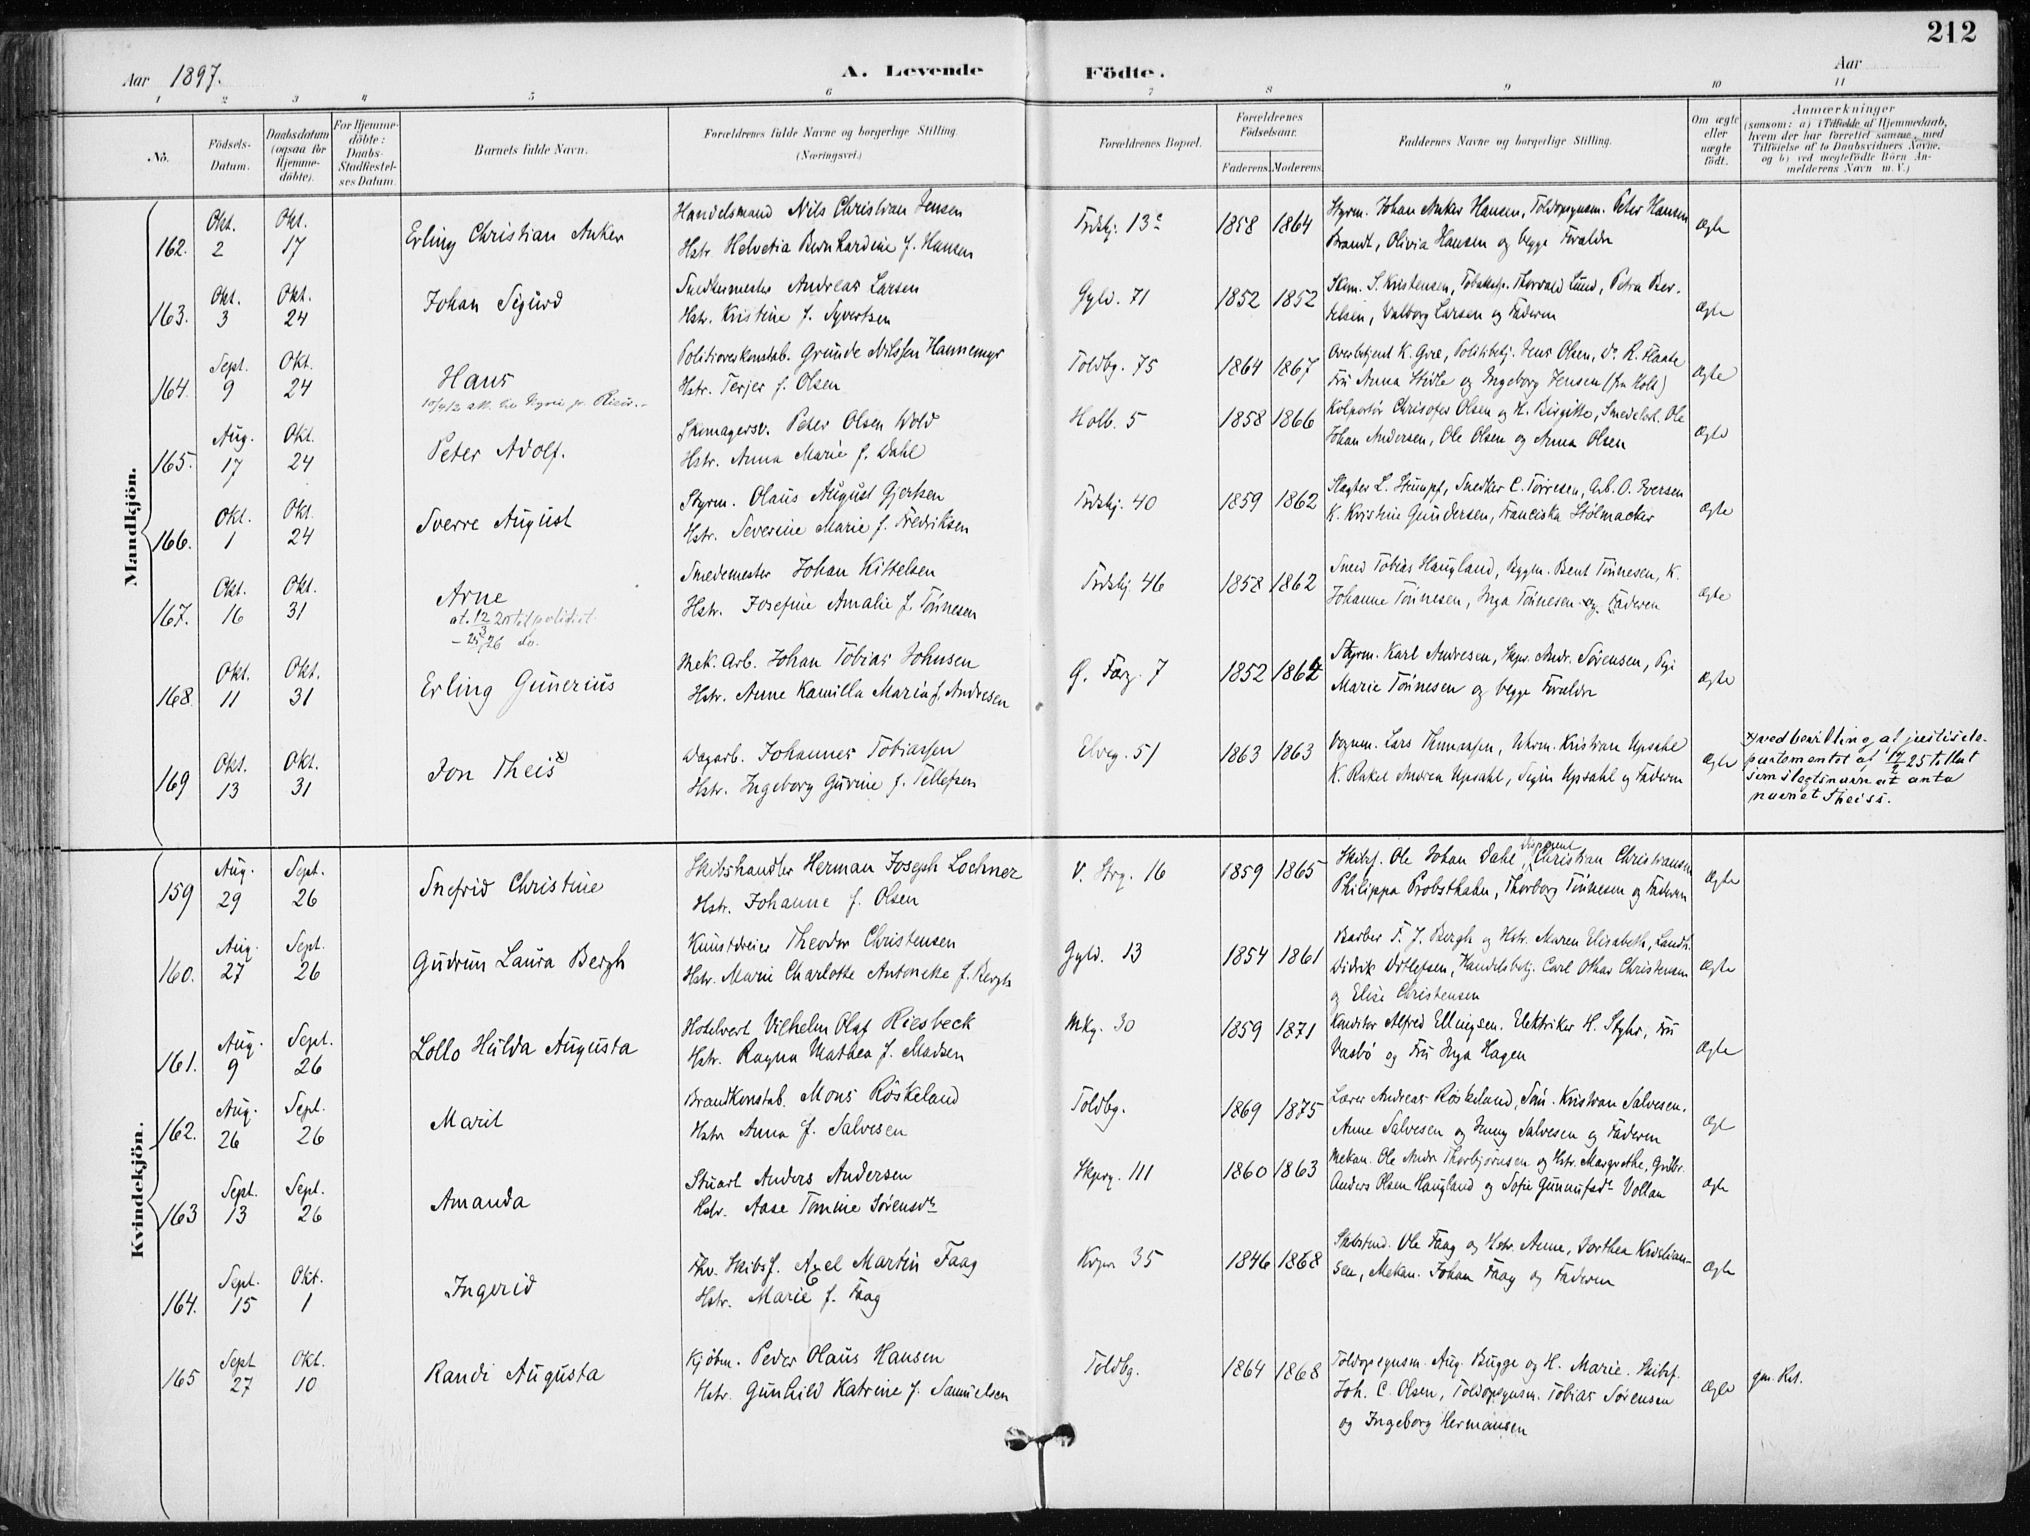 212
Aar 1897.
A. Levende Födte.
Aar
1 2 3 4 5 6 7 8 9 10 11
No.
Födsels-Datum.
Daabsdatum (ogsaa for Hjemme-döbte).
For Hjemme-döbte: Daabs-Stadfæstel-ses Datum.
Barnets fulde Navn.
Forældrenes fulde Navne og borgerlige Stilling.
(Næringsvei.)
Forældrenes Bopæl.
Forældrenes Födselsaar.
Faderens. Moderens.
Faddernes Navne og borgerlige Stilling.
Om ægte eller uægte födt.
Anmærkninger
(saasom: a) i Tilfælde af Hjemmedaab,
hvem der har forrettet samme, med
Tilföielse af to Daabsvidners Navne,
og b) ved uægtefödte Börn An-
melderens Navn m. V.)
Mandkjön.
162. Okt. 2 Okt. 17 Erling Christian Anker
Handelsmand Nils Christian Jensen
Hstr. Helvetia Bernhardine f. Hansen
13 1858 1864
Styrm. Johan Anker Hansen, Toldopsynsm. Peter Hansen
Brandt, Olivia Hansen og begge Forældre
Ægte
163. Okt. 3 Okt. 24 Johan Sigurd
Snedkermester Andreas Larsen
Hstr. Kristine f. Syvertsen
Gyld. 71 1852 1852
Skom. S. Kristensen, Thorvald Lund, Petra Ber-
telsen, Valborg Larsen og Faderen
Ægte
164. Sept. 9 Okt. 24 Hans
Politioverkonstab. Grunde Nilssen Hannemyr
Hstr. Terjer f. Olsen
Toldbg. 75 1864 1867
Overbetjent K. Jens Olsen, R. Flaate
Fru Anna og Ingeborg Jensen (fra Holt)
Ægte
165. Aug. 17 Okt. 24 Peter Adolf.
Skomagersv. Peter Olsen Wold
Hstr. Anna Marie f. Dahl
Holb. 5 1858 1866
Kolportör Christofer Olsen og H. Birgitte, Ole
Johan Andersen, Ole Olsen og Anna Olsen
Ægte
166. Okt. 1 Okt. 24 Sverre August
Styrm. Olaus August Gjertsen
Hstr. Severine Marie f. Fredriksen
40 1859 1862
Slagter L. Stumpf, Snedker C. Törresen, Arb. O. Iversen
K. Kristine Gundersen, Franciska Stölmacker
Ægte
167. Okt. 16 Okt. 31 Arne
Smedemester Johan Kittelsen
Hstr. Josefine Amalie f. Tönnesen
46 1858 1862
Smed Tobias Haugland, Bygm. Bent Tönnesen, K.
Johanne Tönnesen, Inga Tönnesen og Faderen
Ægte
168 Okt. 11 Okt. 31 Erling Gunerius
Mek. Arb. Johan Tobias Johnsen
Hstr. Anne Kamilla Maria f. Andresen
G. 7 1852 1864
Styrm. Karl Andresen, Skpr. Andr. Sörensen, Pigi
Marie Tönnesen og begge Forældre
Ægte
169 Okt. 13 Okt. 31 Jon Theis x)
Dagarb. Johannes Tobiassen
Hstr. Ingeborg Gurine f. Tellefsen
Elveg. 51 1863 1863
Vognm. Lars Thomassen, Uhrm. Kristian Upsahl
K. Rakel Andrea Upsahl, Sigin Upsahl og Faderen
Ægte
x) ved bevilling af justisde-
partementet af 17/2 25 tillat
som slegtsnavn at anta
navnet Theiss.
Kvindekjön.
159 Aug. 29 Sept. 26 Snefrid Christine
Skibshandler Herman Joseph Lochner
Hstr. Johanne f. Olsen
V. Strg. 16 1859 1865
Skibsf. Ole Johan Dahl, Disponent Christian Christiansen
Philippa Probsthahn, Thorborg Tönnesen og Faderen
Ægte
160. Aug. 27 Sept. 26 Gudrun Laura Bergh
Kunstdreier Theodor Christensen
Hstr. Marie Charlotte Antonette f. Bergh
Gyld. 13 1854 1861
Barber F. J. Bergh og Hstr. Maren Elisabeth, Landh.
Didrik Ditlefsen, Handelsbetj. Carl Othar Christensen
og Elise Christensen
Ægte
161. Aug. 9 Sept. 26 Lollo Hulda Augusta
Hotelvert Vilhelm Olaf Riesbeck
Hstr. Ragna Mathea f. Madsen
Mkg. 30 1859 1871
Konditor Alfred Ellingsen. Elektriker H. Styhr, Fru
Vasbö og Fru Inga Hagen
Ægte
162. Aug. 26 Sept. 26 Marit
Brandkonstab. Mons Röskeland
Hstr Anna f. Salvesen
Toldbg. 1869 1875
Lærer Andreas Röskeland, Töm. Kristian Salvesen.
Anne Salvesen og Jenny Salvesen og Faderen
Ægte
163 Sept. 13 Sept. 26 Amanda
Stuart Anders Andersen
Hstr. Aase Tomine Sörensdr
Skprg. 111 1860 1863
Mekan. Ole Andr. Thorbjörnsen og Hstr. Margrethe, Grdbr.
Anders Olsen Haugland og Sofie Gunnufsdr Vollan
Ægte
164. Sept. 15 Okt. 1 Ingerid
Fhv. Skibsf. Axel Martin Faag
Hstr. Marie f. Faag
35 1846 1868
Ole Faag og Hstr. Anne, Dorthea Kristian-
sen, Mekan. Johan Faag og Faderen
Ægte
165 Sept 27 Okt. 10 Randi Augusta
Kjöbm. Peder Olaus Hansen
Hstr. Gunhild Katrine f. Samuelsen
Toldbg. 1864 1868
Toldopsynsm. Aug. Bugge og H. Marie. Skibsf.
Joh. C. Olsen, Toldopsynsm. Tobias Sörensen
og Ingeborg Hermansen
Ægte